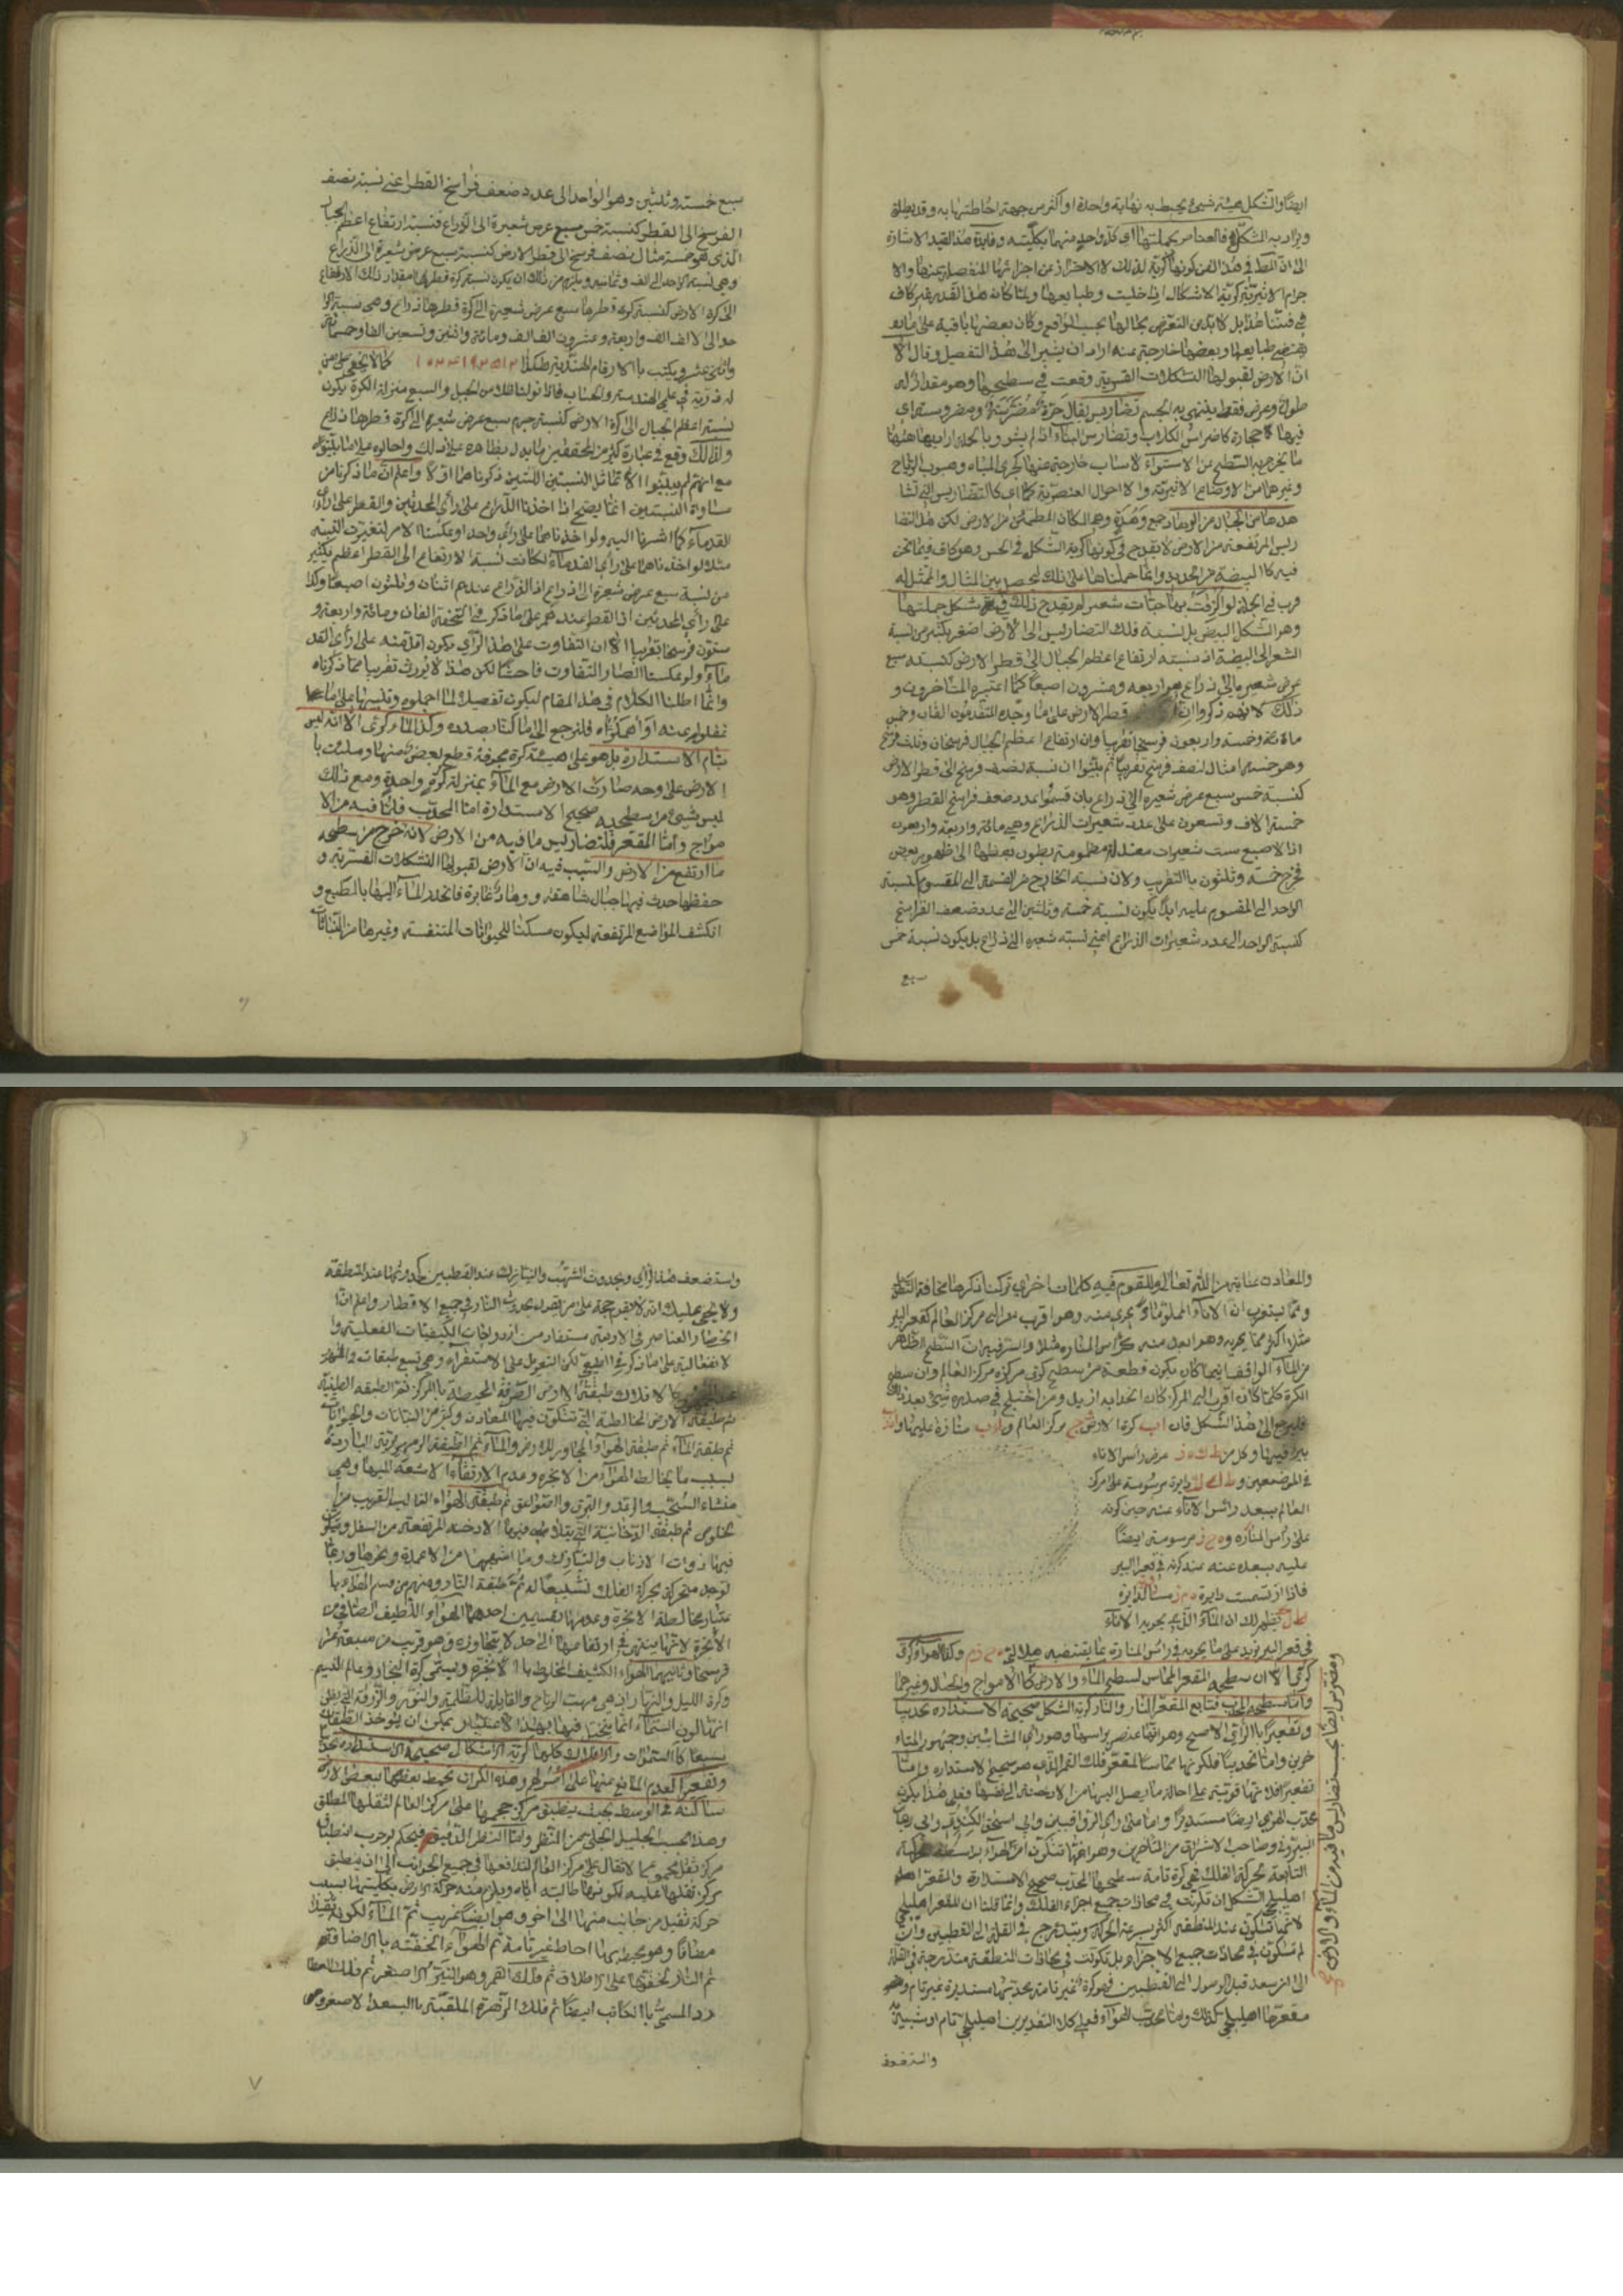 ايضا والشكل هيئة شيئ يحيط به نهاية واحدة او اكثر من جهة احاطتها به وقد يطلق
ويراد به المشكل فالعناصر بجملتها اي كل واحد منها بكليته وفايدة هذا القيد الاشارة
الى ان المط في هذا الفن كونها كرية لذلك لا الاحتراز عن اجزائها المنفصلة عنها والا
جرام الاثيرية كرية الاشكال اذا خليت وطبايعها ولما كان هذا القدر غير كاف
في فننا هذا بل لا بد من التعرض بحالها بحسب الواقع وكان بعضها باقية على ما
يقتضيه طبايعها وبعضها خارجة عنه اراد ان يشير الى هذا التفصيل وقال الا
ان الارض لقبولها التشكلات القسرية وقعت في سطحها وهو مقدار له
طول وعرض فقط ينتهي به الجسم تضاريس يقال حرة مضرسة ومضروسة اي
فيها حجارة كاضراس الكلاب وتضارس البناء اذا لم يستو وبالجملة اراد بها ههنا
ما يخرج به السطح عن الاستواء لاسباب خارجة عنها كجري المياه وهبوب الرياح
وغيرهما من الاوضاع الاثيرية والاحوال العنصرية كما اي كالتضاريس التي نشا
هدها من الجبال والوهاد جمع وهدة وهو المكان المطمئن من الارض لكن هذه التضا
ريس المرتفعة من الارض لا يقدح في كونها كرية الشكل في الحس وهو كاف فيما نحن
فيه كالبيضة من الحديد وانما حملناها على ذلك ليحصل بين المثال والممثل له
قرب في الجملة لو الزقت بها حبات شعير لم يقدح ذلك في شكل جملتها
وهو الشكل البيضي بل نسبة تلك التضاريس الى الارض اصغر بكثير من نسبة
الشعير الى البيضة اذ نسبة ارتفاع اعظم الجبال الى قطر الارض كنسبة سبع
عرض شعيرة الى ذراع هو اربعة وعشرون اصبعا كما اعتبره المتاخرون و
ذلك لانهم ذكروا ان قطر الارض على ما وجده المتقدمون الفان وخمس
مائة وخمسة واربعون فرسخا تقريبا وان ارتفاع اعظم الجبال فرسخان وثلث فرسخ
وهو خمسة امثال لنصف فرسخ تقريبا ثم بينوا ان نسبة نصف فرسخ الى قطر الارض
كنسبة خمس سبع عرض شعيرة الى ذراع بان قسموا عدد ضعف فراسخ القطر وهو
خمسة الاف وتسعون على عدد شعيرات الذراع وهي مائة واربعة واربعون
اذ الاصبع ست شعيرات معتدلة مضمومة بطون بعضها الى ظهور بعض
فخرج خمسة وثلثون بالتقريب ولان نسبة الخارج من القسمة الى المقسوم كنسبة
الواحد الى المقسوم عليه ابدا يكون نسبة خمسة وثلثين الى عدد ضعف الفراسخ
كنسبة الواحد الى عدد شعيرات الذراع اعني نسبة شعيرة الى ذراع بل يكون نسبة خمس
سبع
سبع خمسة وثلثين وهو الواحد الى عدد ضعف فراسخ القطر اعني نسبة نصف
الفرسخ الى القطر كنسبة خمس سبع عرض شعيرة الى الذراع فنسبة ارتفاع اعظم الجبال
الذي هو خمسة امثال نصف فرسخ الى قطر الارض كنسبة سبع عرض شعيرة الى الذراع
وهي نسبة الواحد الى الف وثمانية ويلزم من ذلك ان يكون نسبة كرة قطرها مقدار ذلك الارتفاع
الى كرة الارض كنسبة كرة قطرها سبع عرض شعيرة الى كرة قطرها ذراع وهي نسبة الوا
حد الى الف الف الف واربعة وعشرون الف الف ومائة واثنين وتسعين الفا وخمسمائة
واثني عشر ويكتب بالارقام الهندية هكذا ١٠٢٤١٩٢٥١٢ كما لا يخفى على من
له دربة في علمي الهندسة والحساب
نسبة اعظم الجبال الى كرة الارض كنسبة جرم سبع عرض شعيرة الى كرة قطرها ذراع
ولذلك وقع في عبارة كثير من المحققين ما يدل بظاهره على ذلك واحالوه على ما بينوه
مع انهم لم يبينوا الا تماثل النسبتين اللتين ذكرناهما اولا واعلم ان ما ذكرنا من
مساواة النسبتين انما يصح اذا اخذنا الذراع على راي المحدثين والقطر على راي
القدماء كما اشرنا اليه ولو اخذناهما على راي واحد او عكسنا الامر لتغيرت النسبة
مثلا لو اخذناهما على راي القدماء لكانت نسبة الارتفاع الى القطر اعظم بكثير
من نسبة سبع عرض شعيرة الى الذراع اذ الذراع عندهم اثنان وثلثون اصبعا وكذا
على راي المحدثين اذ القطر عندهم على ما ذكر في التحفة الفان ومائة واربعة و
ستون فرسخا تقريبا الا ان التفاوت على هذا الراي يكون اقل منه على راي القد
ماء ولو عكسنا لصار التفاوت فاحشا لكن هذا لا يورث تفريبا مما ذكرناه
وانما اطلنا الكلام في هذا المقام ليكون تفصيلا لما اجملوه وتنبيها على ما
غفلوا عنه او اهملوه فلنرجع الى ما كنا بصدده وكذا الماء كري الا انه ليس
بتام الاستدارة بل هو على هيئة كرة مجوفة قطع بعض منها وملئت با
الارض على وجه صارت الارض مع الماء بمنزلة كرة واحدة ومع ذلك
ليس شيئ من سطحيه صحيح الاستدارة اما المحدب فلما فيه من الا
مواج واما المقعر فلتضاريس ما فيه من الارض لانه خرج من سطحه
ما ارتفع من الارض والسبب فيه ان الارض لقبولها التشكلات القسرية و
حفظها حدث فيها جبال شاهقة ووهاد غايرة فانحدر الماء اليها بالطبع و
انكشف المواضع المرتفعة ليكون مسكنا للحيوانات المتنفسة وغيرها من النباتات
والمعادن عناية من الله تعالى وللقوم فيه كلمات اخرى تركنا ذكرها مخافة التطويل
ومما يستغرب ان الاناء المملو ماء يحوي منه وهو اقرب الى مركز العالم كقعر البير
مثلا اكثر مما يحويه وهو ابعد منه كراس المنارة مثلا والسر فيه ان السطح الظاهر
من الماء الواقف اينما كان يكون قطعة من سطح كري مركزه مركز العالم وان سطح
الكرة كلما كان اقرب الى المركز كان احديدابه ازيد ومن اختلج في صدره شيئ بعد ذلك
فليرجع الى هذا الشكل فان اب كرة الارض ج مركز العالم
بير فيها وكل من عرض راس الاناء
في الموضعين و دايرة مرسومة على مركز
العالم ببعد راس الاناء عنه حين كونه
على راس المنارة و مرسومة ايضا
عليه ببعده عنه عند كونه في قعر البير
فاذا ارتسمت دايرة مساوية لدايرة
ظهر لك ان الماء الذي يحويه الاناء
في قعر البير يزيد على ما يحويه في راس المنارة بما يقتضيه هلالي وكذا الهواء كري
كرتها الا ان سطحه المقعر المماس لسطح الماء والارض كالامواج والجبال وغيرهما
واما سطحه المحدب فتابع لمقعر النار والنار كرية الشكل صحيحة الاستدارة تحديبا
وتقعيرا بالراي الاصح وهو انها عنصر براسها وهو راي المشائين وجمهور المتاء
خرين واما تحديبا فلكونها مماسا لمقعر فلك القمر الذي هو صحيح الاستدارة واما
تقعيرا فلانها قوية على احالة ما يصل اليها من الادخنة الى نفسها فعلى هذا يكون
محدب الهواء ايضا مستديرا واما على راي الرواقيين وابي اسحق الكندي وابي ريحان
البيروني وصاحب الاشراق من المتاخرين وهو انها تتكون من الهواء بواسطة حركته
التابعة لحركة الفلك فهي كرة تامة سطحها المحدب صحيح الاستدارة والمقعر
اهليلجي الشكل ان تكونت في محاذات جميع اجزاء الفلك وانما قلنا ان المقعر اهليلجي
لانها تتكون عند المنطقة اكثر لسرعة الحركة ويتدرج في القلة الى القطبين وان
لم تتكون في محاذات جميع الاجزاء بل تكونت في محاذات المنطقة متدرجة في القلة
الى ان ينعد قبل الوصول الى القطبين فهي كرة غير تامة محدبها مستديرة غير تام و
مقعرها اهليلجي كذلك واما محدب الهواء فعلى كلا التقديرين اهليلجي تام او شبيه
واستضعف
ومقعره ايضا بحسب تضاريس ما فيه من الماء والارض صح
واستضعف هذا الراي وبحدوث الشهب والنيازك عند القطبين كحدوثها عند المنطقة
ولا يخفى عليك انه لا يقوم حجة على من يقول بحدوث النار في جميع الاقطار واعلم ان
انحصار العناصر في الاربعة مستفاد من ازدواجات الكيفيات الفعلية وا
لانفعالية على ما ذكر في الطبيعي لكن التعويل على الاستقراء وهي تسع طبقات
كالافلاك طبقة الارض الصرفة المحيطة بالمركز ثم الطبقة الطينية
ثم طبقة الارض المخالطة التي تتكون فيها المعادن وكثير من النباتات والحيوانات
ثم طبقة الماء ثم طبقة الهواء المجاور للارض والماء ثم الطبقة الزمهريرية الباردة
بسبب ما يخالط الهواء من الابخرة وعدم ارتقاء الاشعة اليها وهي
منشاء السحب والرعد والبرق والصواعق ثم طبقة الهواء الغالب القريب من
الخلوص ثم طبقة الدخانية التي يتلاشى فيها الادخنة المرتفعة من السفل ويتكون
فيها ذوات الاذناب والنيازك وما اشبهها من الاعمدة ونحوها وربما
توجد متحركة بحركة الفلك تشييعا له ثم طبقة النار ومنهم من قسم الهواء با
عتبار مخالطة الابخرة وعدمها بقسمين احدهما الهواء اللطيف الصافي من
الابخرة لانها ينتهي في ارتفاعها الى حد لا يتجاوزه وهو قريب من سبعة عشر
فرسخا وثانيهما الهواء الكثيف المخلوط بالابخرة ويسمى كرة البخار وعالم النسيم
وكرة الليل والنهار اذ هي مهب الرياح والقابلة للظلمة والنور والزرقة التي يظن
انها لون السماء انما يتخيل فيها وبهذا الاعتبار يمكن ان يؤخذ الطبقات
سبعا كالسموات والافلاك كلها كرية الاشكال صحيحة الاستدارة تحديبا
وتقعيرا لعدم المانع منها على اصولهم وهذه الكرات يحيط بعضها ببعض الارض
ساكنة في الوسط بحيث ينطبق مركز حجمها على مركز العالم لثقلها المطلق
وهذا بحسب الجليل الجلي من النظر واما النظر الدقيق فيحكم بوجوب انطباق
مركز ثقل مجموع الاثقال على مركز العالم لتدافعها في جميع الجوانب الى ان ينطبق
مركز ثقلها عليه لكونها طالبة اياه ويلزم منه حركة الارض بكليتها بسبب
حركة ثقيل من جانب منها الى اخر وهو ايضا غريب ثم الماء لكونه ثقيلا
مضافا وهو محيط بها احاطة غير تامة ثم الهواء لخفته بالاضافة
ثم النار لخفتها على الاطلاق ثم فلك القمر وهو النير الاصغر ثم فلك العطا
رد المسمى بالكاتب ايضا ثم فلك الزهرة الملقبة بالسعد الاصغر وهي
٧